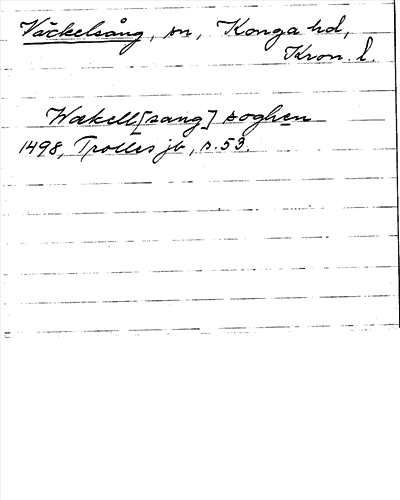 Väckelsång, sn, Konga hd,
Kron. l.
Wækell[sang] soghen
1498, Trolles jb, s. 53.